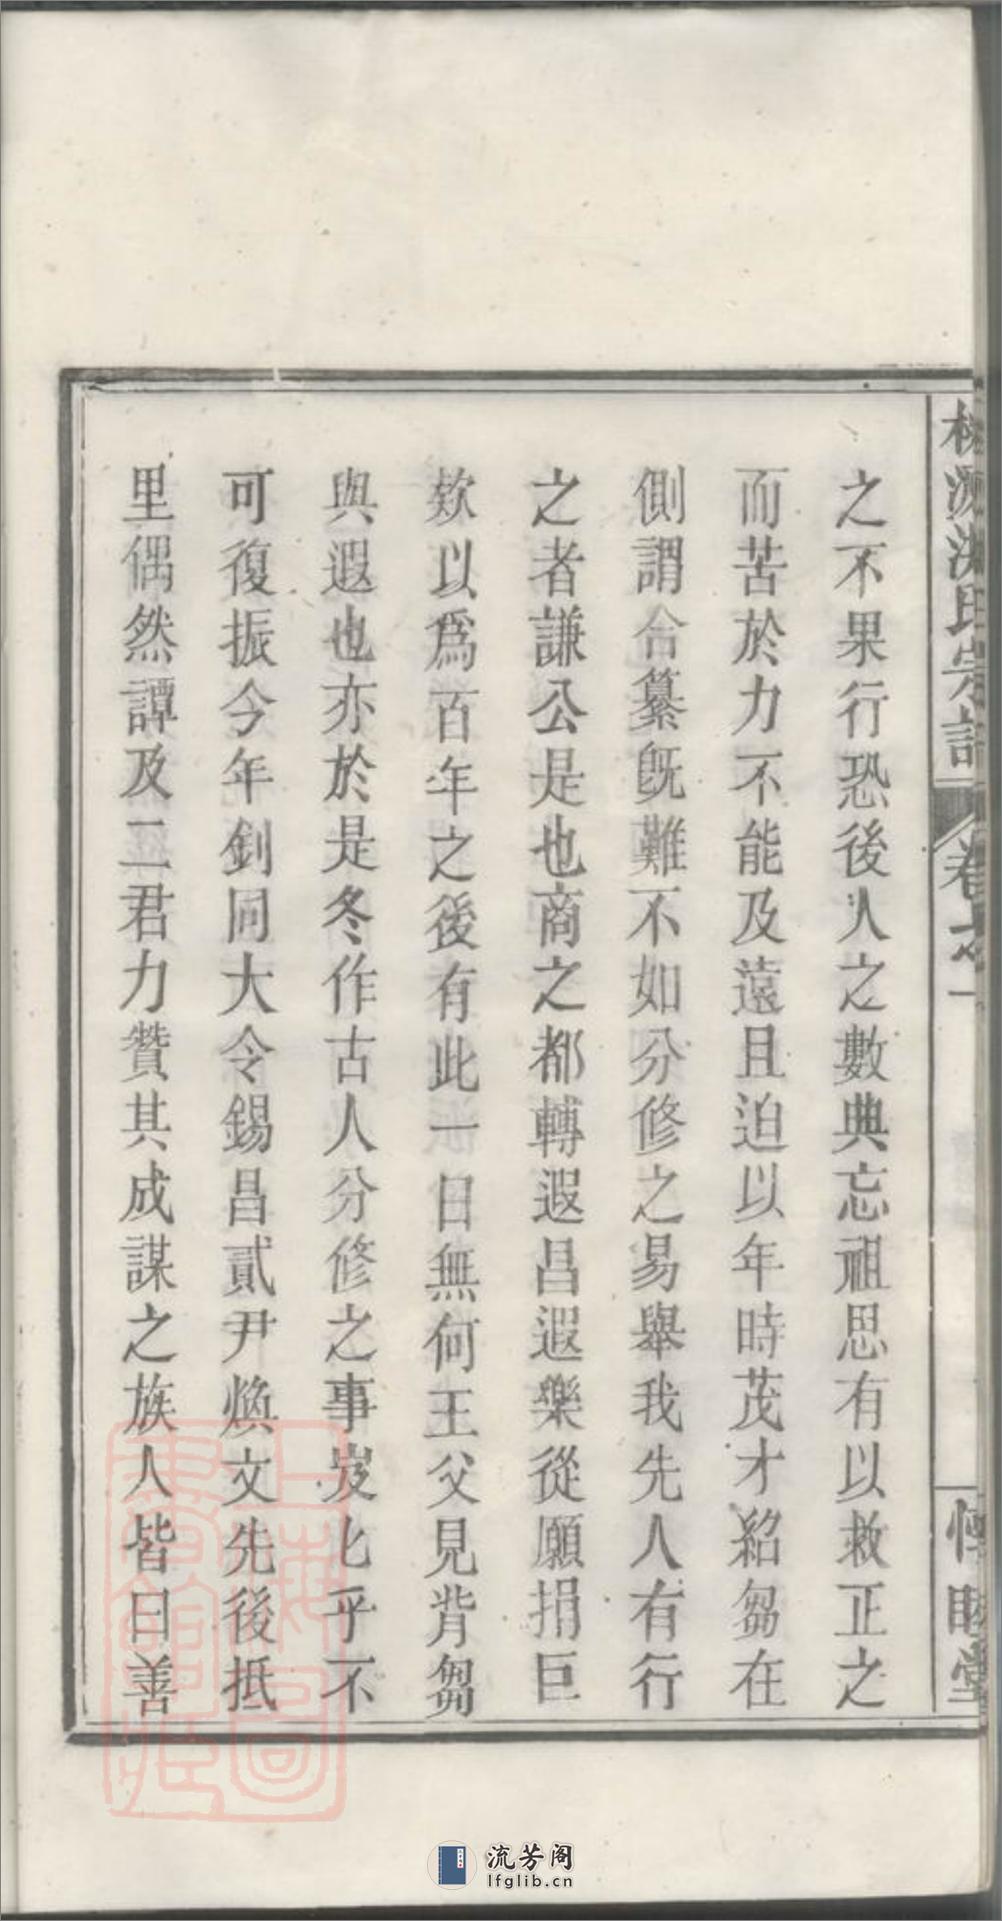 之不果行恐後人之數典忘祖思有以救正之
而苦於力不能及遠且迫以年時茂才紹芻在
側謂合纂旣難不如分修之易舉我先人有行
之者謙公是也商之都轉遐昌遐樂從願捐巨
欵以爲百年之後有此一日無何王父見背芻
與遐也亦於是冬作古人分修之事岌乆乎不
可復振今年釗同大令錫昌貳尹煥文先後抵
里偶然譚及二君力贊其成謀之族人皆曰善
氏宗譜
卷之一
惇睦堂
上海圖書館藏
流芳阁
lfglib.cn